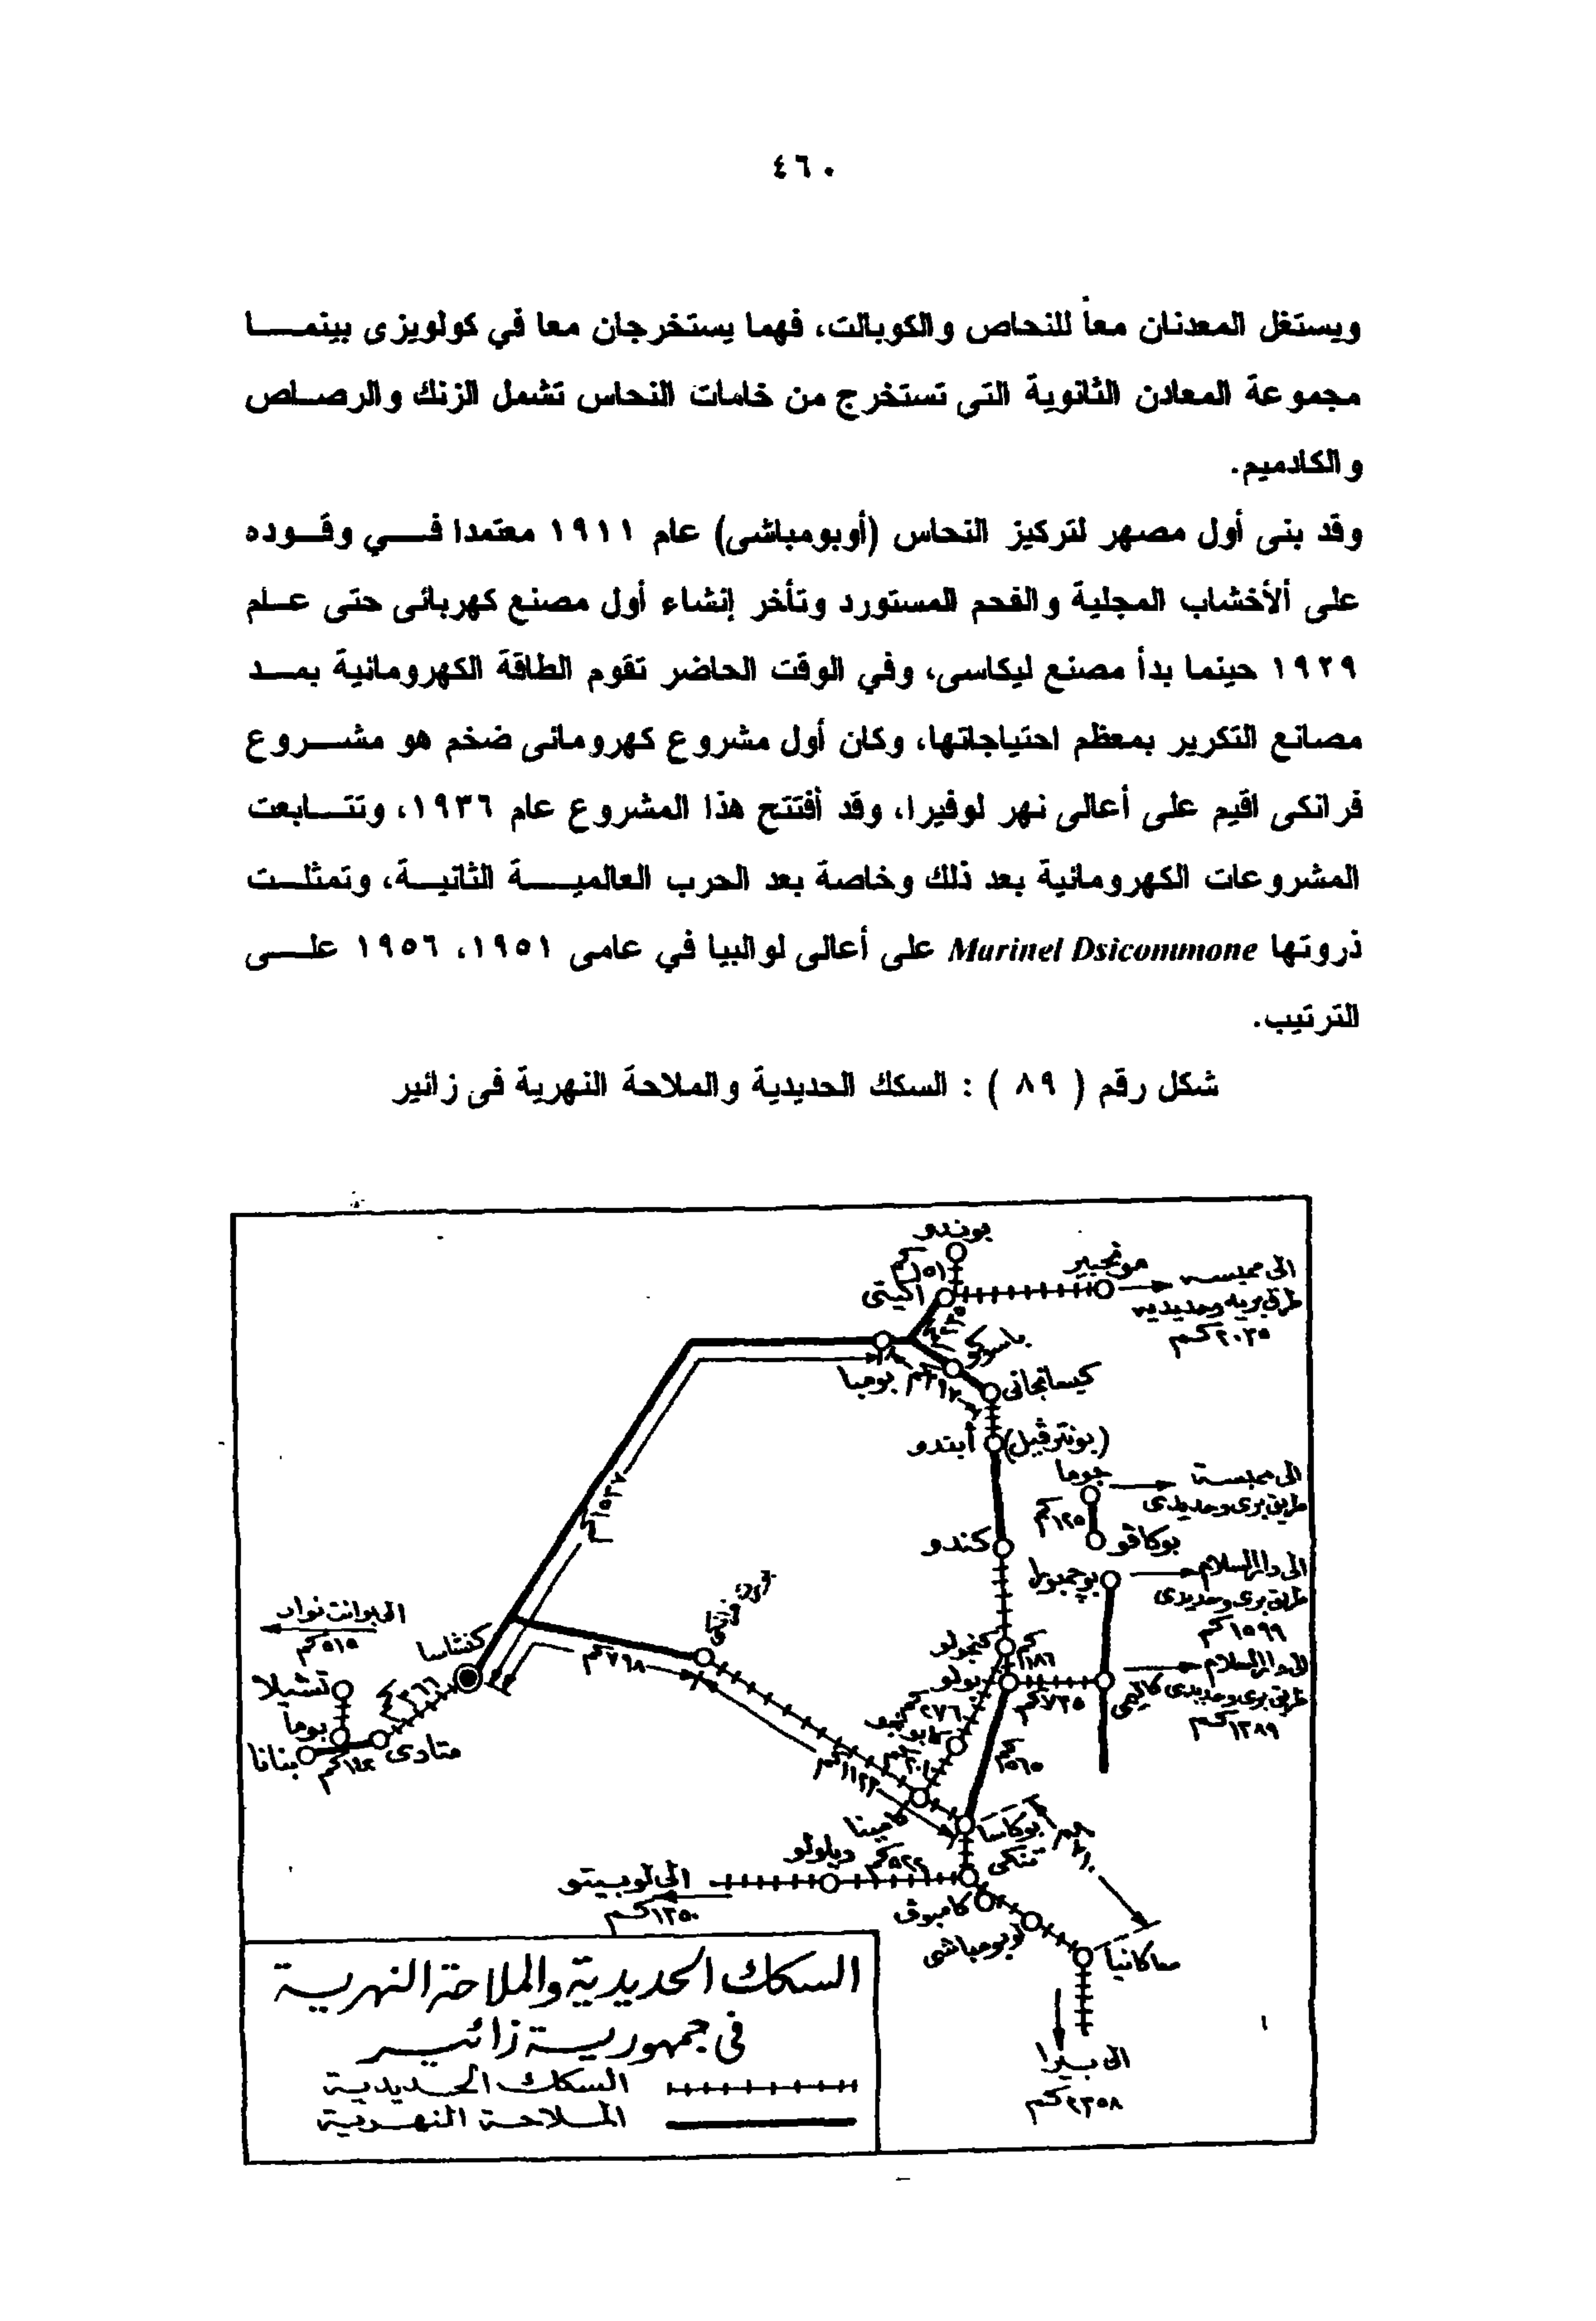 ٤٦٠
ويستغل المعدنان معاً للنحاص والكوبالت، فهما يستخرجان معا في كولويزى بينما
مجموعة المعادن الثانوية التى تستخرج من خامات النحاس تشمل الزنك والرصاص
والكادميم.
وقد بنى أول مصهر لتركيز النحاس (أوبومباشى) عام ١٩١١ معتمدا في وقوده
على ألأخشاب المجلية والفحم المستورد وتأخر إنشاء أول مصنع كهربائى حتى عام
١٩٢٩ حينما بدأ مصنع ليكاسى، وفي الوقت الحاضر تقوم الطاقة الكهرومائية بمد
مصانع التكرير بمعظم احتياجاتها، وكان أول مشروع كهرومائى ضخم هو مشروع
فرانكى اقيم على أعالى نهر لوفيرا، وقد أفتتح هذا المشروع عام ١٩٣٦، وتتابعت
المشروعات الكهرومائية بعد ذلك وخاصة بعد الحرب العالمية الثانية، وتمثلت
ذروتها Marinel Dsicommone على أعالى لوالبيا في عامى ١٩٥١، ١٩٥٦ على
الترتيب.
شكل رقم ( ٨٩ ) : السكك الحديدية والملاحة النهرية فى زائير
بوندو
مونجبير
الى ممبسه
طرق بريه وحديديه
٢٠٣٥ كم
اكيتى
باسوكو
بومبا
كيسانجانى
(بونترفيل) أبتدو
جوما
الى ممبسة
طريق برى وحديدى
١٢٥ كم
بوكافو
كندو
الى دار السلام
طريق برى وحديدى
١٥٩٩ كم
كنجولو
١٨٦ كم
الى دار السلام
طريق برى وحديدى
١٣٨٩ كم
٧٣٥ كم
٢٧٦ كم
٥٦٥ كم
١٥٣٧ كم
الى بوانت نوار
٥١٥ كم
كنشاسا
٧٦٨ كم
تشيلا
٣٦٦ كم
بوما
متادى
بنانا
كامينا
بوكاسا
تنكى
ديلولو
٥٢٢ كم
الى لوبيتو
١٣٥٠ كم
كامبوف
لوبومباشى
سماكانيا
الى بيرا
٢٣٥٨ كم
السكك الحديدية والملاحة النهرية
فى جمهورية زائير
السكك الحديدية
الملاحة النهرية